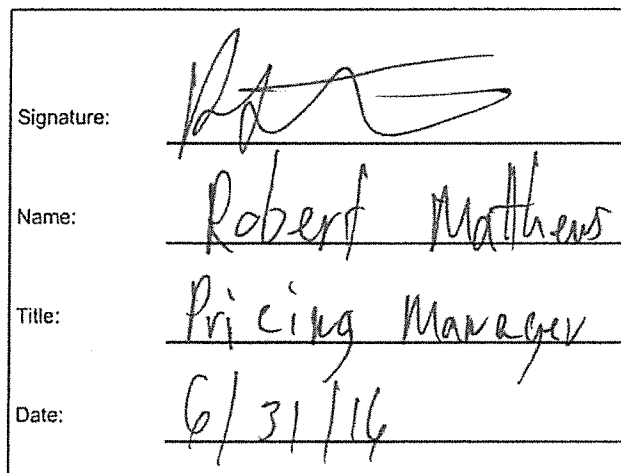 Signature:
Name: Robert Matthews
Title: Pricing Manager
Date: 6/31/16